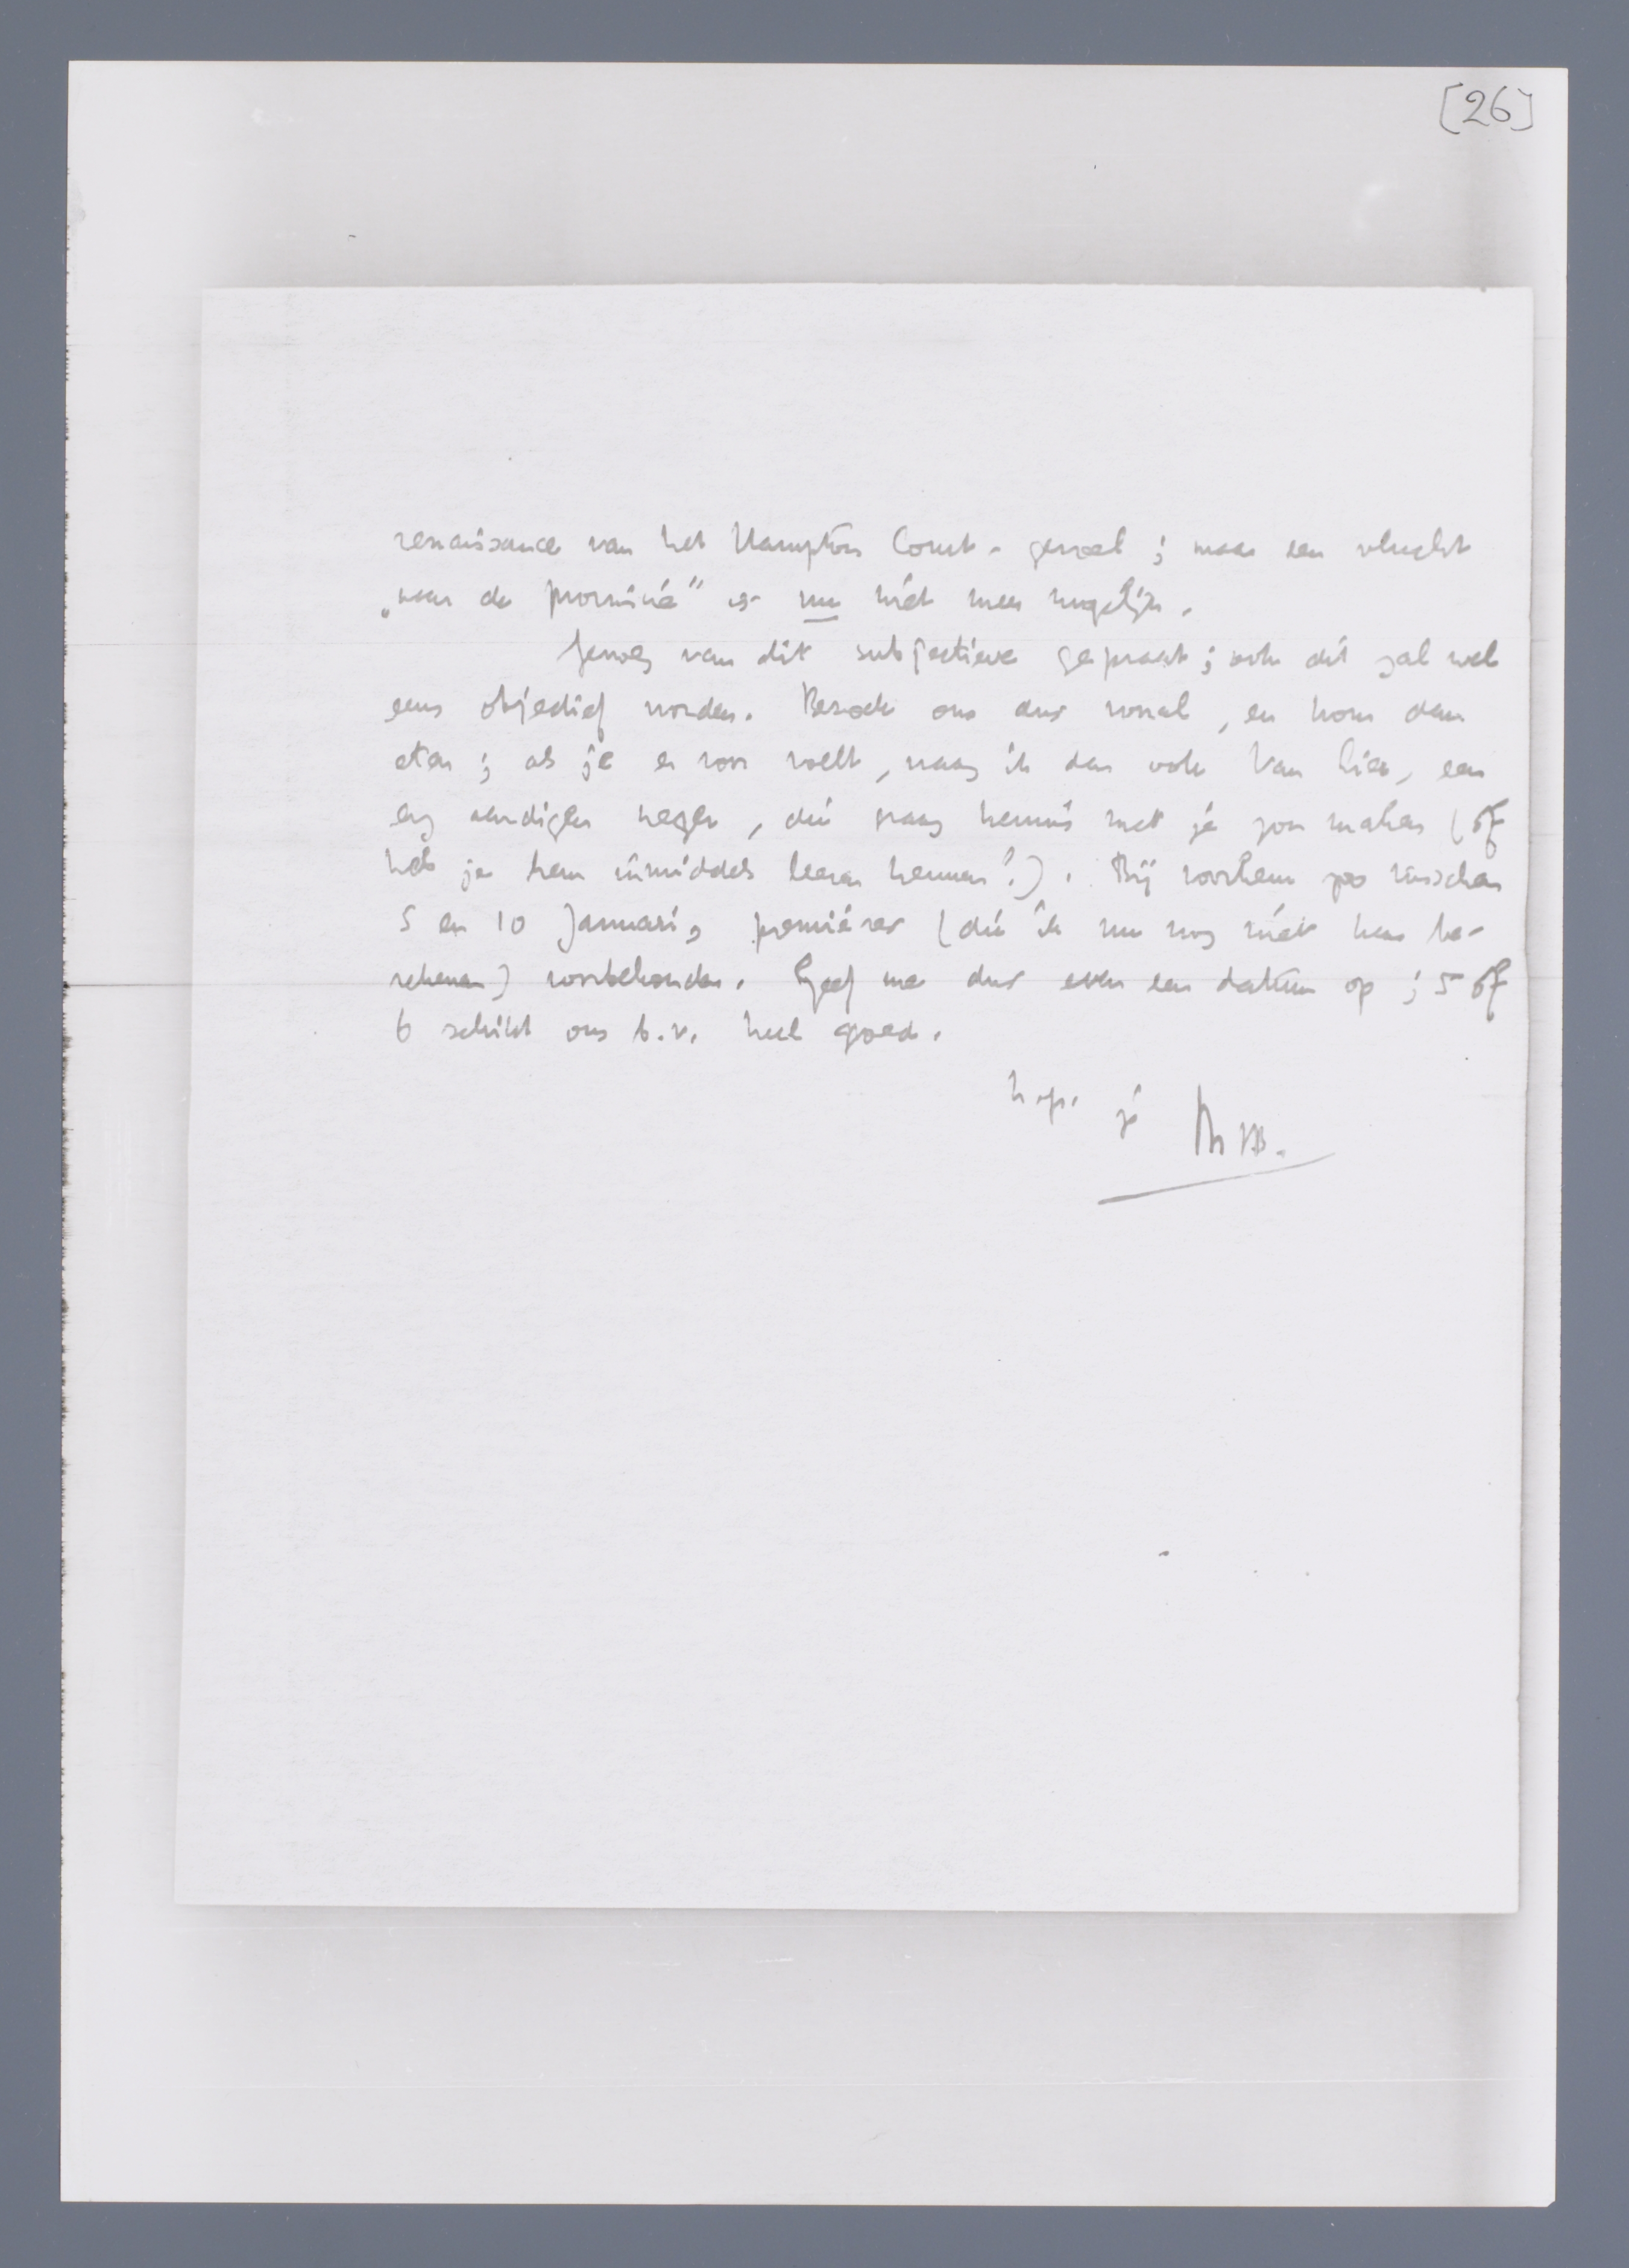 [26]
renaissance van het Hampton Court-gevoel; maar een vlucht
„naar de provincie” is nu niet meer mogelijk.
Genoeg van dit subjectieve gepraat; ook dit zal wel
eens objectief worden. Bezoek ons dus vooral, en kom dan
eten; als je er voor voelt, vraag ik dan ook Van Lier, een
erg aardigen neger, die graag kennis met je zou maken (óf
heb je hem inmiddels leeren kennen?). Bij voorkeur zoo tusschen
5 en 10 Januari, premières (die ik nu nog niet kan be-
rekenen) voorbehouden. Geef me dus even een datum op; 5 óf
6 schikt ons b.v. heel goed.
h. gr. je MtB.